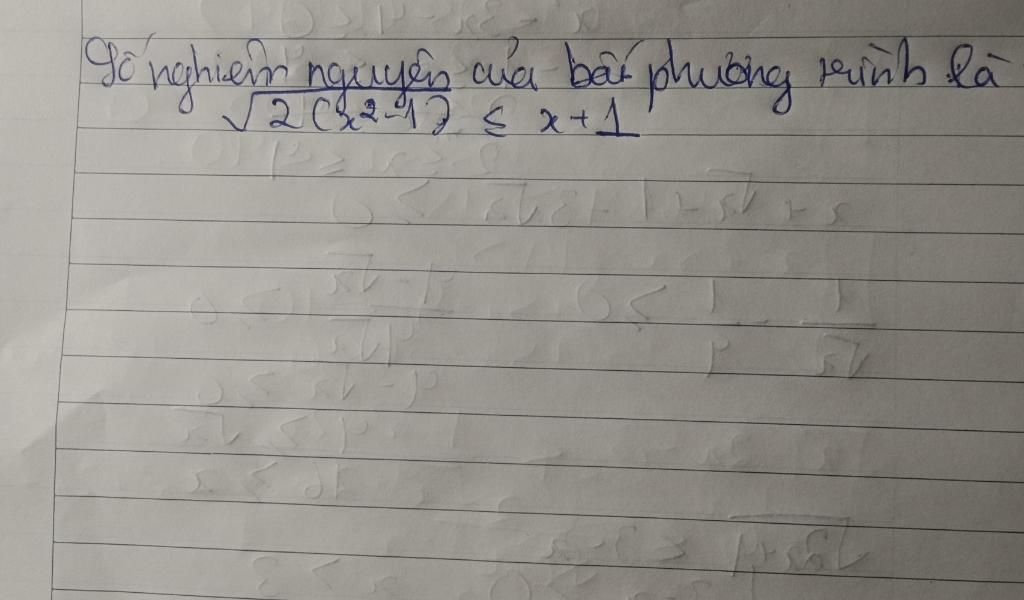 Số nghiệm nguyên của bất phương trình là
√2(x²-1) ≤ x+1